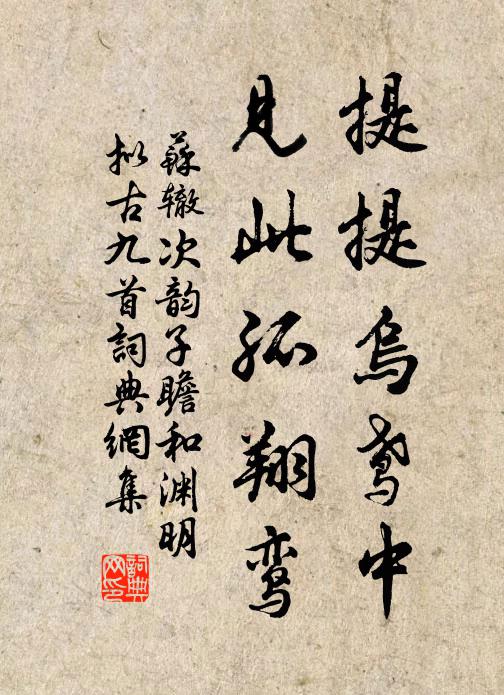 提提乌鸢中
见此孤翔鸾
蘇辙次韵子瞻和渊明
拟古九首詞典網集
詞典網印